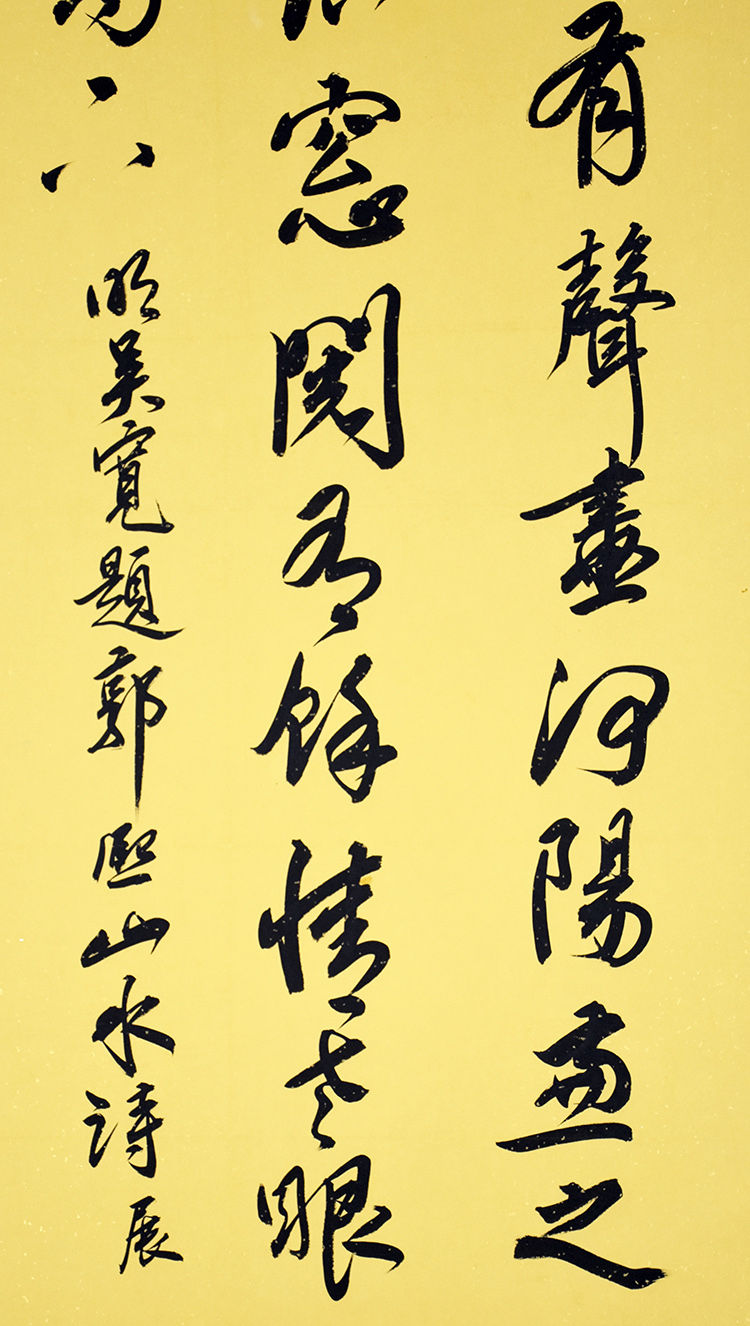 有聲畫河陽畫之
窓閱有餘情老眼
六
明吳寬題郭熙山水詩展